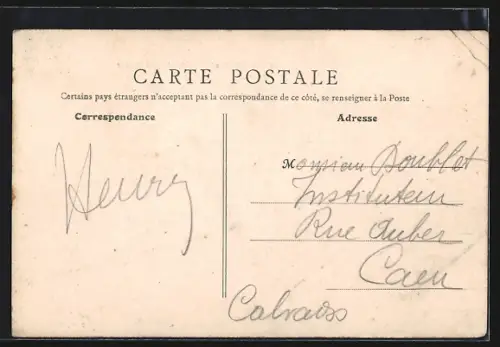 CARTE POSTALE
Certains pays étrangers n'acceptant pas la correspondance de ce côté, se renseigner à la Poste
Correspondance
Adresse
Henry
Monsieur Doublet
Instituteur
Rue Auber
Caen
Calvados